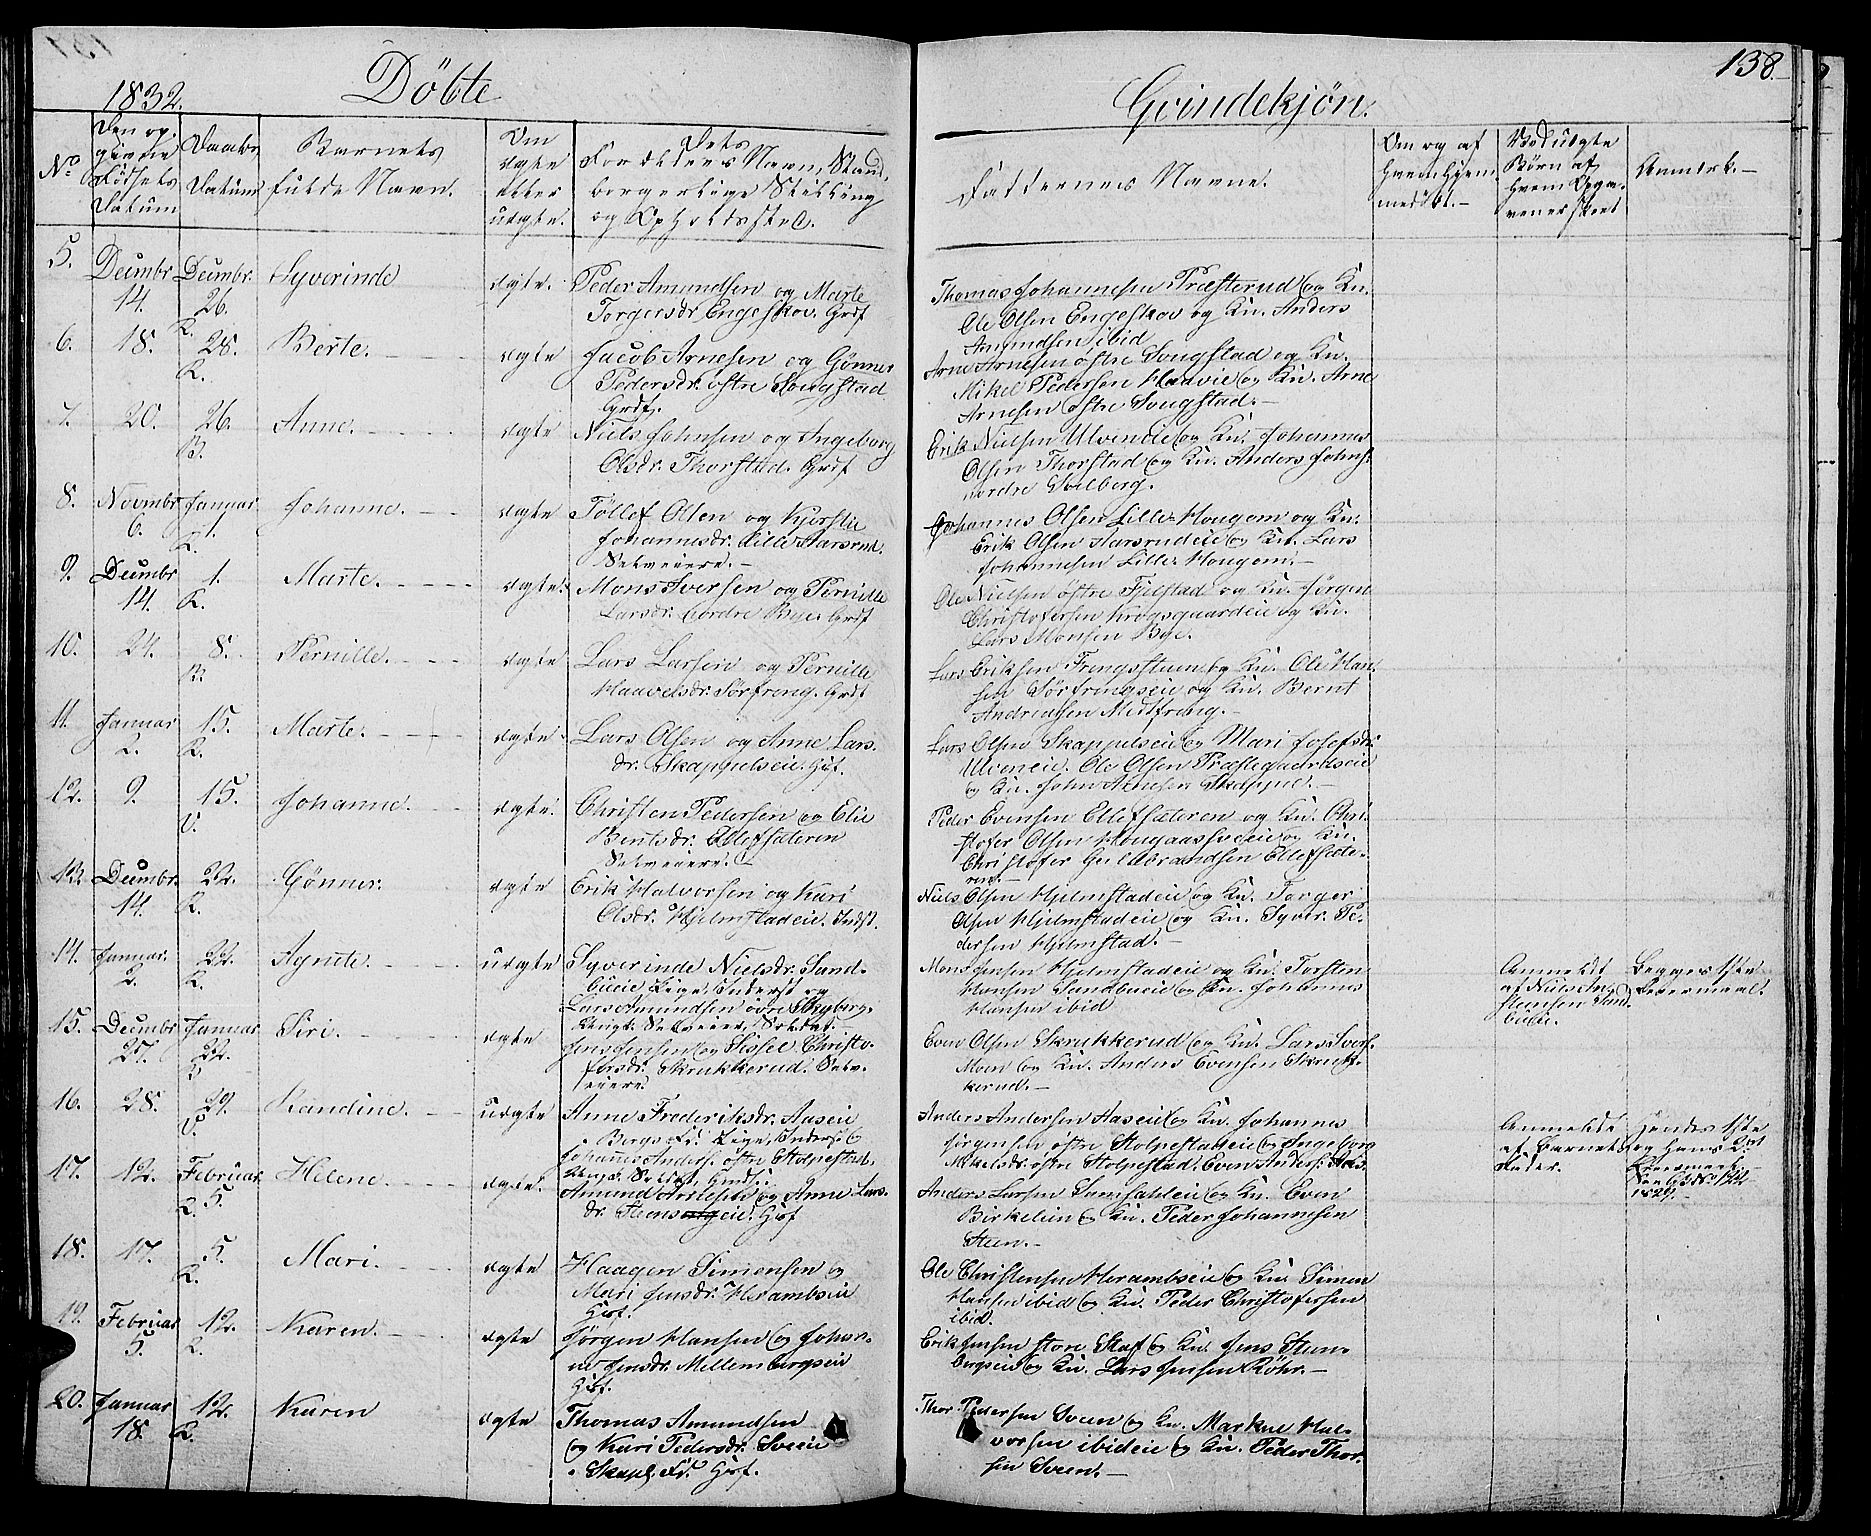 138.
1832. Döbte Qvindekjön.
No Den opgivne Födsels Datum Daabs Datum Barnets fulde Navn. Om ægte eller uægte. Dets Forældres Navn, Stand, borgerlige Stilling og Opholdssted. Faddernes Navne. Om og af hvem hjemmedöbt. Ved uægte Börn af hvem Opgaven er skeet Anmærk.
5. Decembr 14. Decembr. 26. R. Syverinde ægte. Peder Amundsen og Marte
Torgersdr. Engeskov. Grdf
Thomas Johannesen Præsterud og Kn.
Ole Olsen Engeskov og Kn. Anders
Amundsen ibid
6. 18. 28. R. Berte. ægte Jacob Arnesen og Gönner
Pedersdr. östre Sougstad
Grdf.
Arne Arnesen östre Sougstad og Kn.
Mikel Pedersen Haavie og Kn. Arne
Arnesen östre Sougstad.
7. 20. 26. B. Anne. ægte Niels Johnsen og Ingeborg
Olsdr. Thorstad. Grdf
Erik Nielsen Ulveneie og Kn. Johannes
Olsen Thorstad og Kn. Anders Johns.
nordre Solberg.
8. Novmbr 6. Januar 1. R. Johanne. ægte Töllef Olsen og Kjerstie
Johannesdr. Lille Aarsrud.
Selveiere.
Johannes Olsen Lille-Hougom og Kn.
Erik Olsen Aarsrudeie og Kn. Lars
Johannesen Lille-Hougom.
9. Decmbr 14. 1. R. Marte. ægte. Mons Iversen og Pernille
Larsdr. nordre Bye. Grdf
Ole Nielsen östre Fjelstad og Kn. Jörgen
Christofersen Krogsgaardeie og Kn.
Lars Monsen Bye.
10. 24. 8. B. Pernille. ægte Lars Larsen og Pernille
Haavelsdr. Sörfreng. Grdf
Lars Eriksen Frengsstuen og Kn. Ole Han-
sen Sörfrengseie og Kn. Bernt
Andreasen Midtfreng.
11. Januar 2. 15. R. Marte. ægte Lars Olsen og Anne Lars-
dr. Skappelseie. Husf.
Lars Olsen Skappelseie og Mari Josefsdr.
Ulveneie. Ole Olsen Præstegaardseie
og Kn. John Arnesen Skappel.
12. 9. 15. V. Johanne. ægte. Christen Pedersen og Elie
Berntsdr. Ellefsæteren
Selveiere.
Peder Evensen Ellefsæteren og Kn. Chri-
stofer Olsen Hougaasseie og Kn.
Christofer Guldbrandsen Ellefsæte-
ren.
13. Decmbr. 14. 22. R. Gönner. ægte Erik Halvorsen og Kari
Olsdr. Hjelmstadeie. Indst.
Niels Olsen Hjelmstadeie og Kn. Torger
Olsen Hjelmstadeie og Kn. Syver Pe-
dersen Hjelmstad.
14. Januar. 2. 22. R. Agnete. uægte Syverinde Nielsdr. Sand-
bueie Pige, Inderst og
Lars Amundsen övre Skyberg.
Ungk. Selveier, Soldat.
Mons Jensen Hjelmstadeie og Kn. Torsten
Hansen Sandbueie og Kn. Johannes
Hansen ibid
Anmeldt af Niels Tor-
stensen Sand-
bueie.
Begges 1ste
Leiermaal.
15. Decmbr 27. Januar 22. Siri. ægte Jens Jensen og Sissel Christo-
fersdr. Skrukkerud. Selv-
eiere.
Even Olsen Skrukkerud og Kn. Lars Ivers.
Moen og Kn. Anders Evensen Skruk-
kerud.
16. 28. 29. V. Randine. uægte Anne Frederiksdr. Aaseie
Bergs Fd. Pige, Inderst og
Johannes Anders. östre Stolpestad.
Anders Andersen Aaseie og Kn. Johannes
Jörgensen östre Stolpestadeie og Ingeborg
Mikelsdr. östre Stolpestad. Even Anders. Aas.
Anmeldt
af Barnets
Fader.
Hendes 1ste
og hans 2det
Leiermaal.
17. 12. Februar 5. Helene. ægte. Amund Arnesen og Anne Lars-
dr. Steenseie. Husf
Anders Larsen Sumstadeie og Kn. Even
Birkelien og Kn. Peder Johannesen
Steen.
18. 17. 5. R. Mari. ægte Haagen Simensen og
Mari Jensdr. Herambseie
Husf.
Ole Christensen Herambseie og Kn. Simen
Hansen ibid og Kn. Peder Christofersen
ibid.
19. Februar 5. 12. R. Karen. ægte Jörgen Hansen og Johan-
ne Jensdr. Mellembergseie
Husf.
Erik Jensen store Skof og Kn. Jens Steen-
bergseie og Kn. Lars Jensen Röhr.
20. Januar 18. 12. R. Karen ægte Thomas Amundsen
og Kari Pedersdr. Sveeie
Skapl. Fd. Husf.
Thor Pedersen Sveen og Kn. Markue Hal-
vorsen ibideie og Kn. Peder Thor-
sen Sveen.